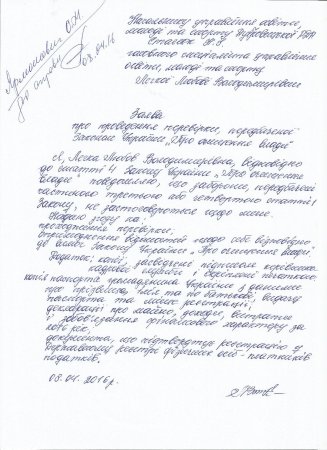 Начальнику управління освіти,
молоді та спорту Дубровицької РДА
головного спеціаліста управління
освіти, молоді та спорту
Любові Володимирівни
08.04.16
Заява
про проведення перевірки, передбаченої
Законом України „Про очищення влади"
Я, Любов Володимирівна, відповідно
до статті 4 Закону України „Про очищення
влади" повідомляю, що заборони, передбачені
частиною третьою або четвертою статті 1
Закону, не застосовуються щодо мене.
Надаю згоду на:
проходження перевірки;
оприлюднення відомостей щодо себе відповідно
до вимог Закону України „Про очищення влади".
Додаток: копії, засвідчені підписом керівника
кадрової служби і скріплені печаткою:
копія паспорта громадянина України з даними
про прізвище, ім'я та по батькові, видачу
паспорта та місце реєстрації;
декларації про майно, доходи, витрати
і зобов'язання фінансового характеру за
рік;
документа, що підтверджує реєстрацію у
Державному реєстрі фізичних осіб - платників
податків.
08.04.2016 р.